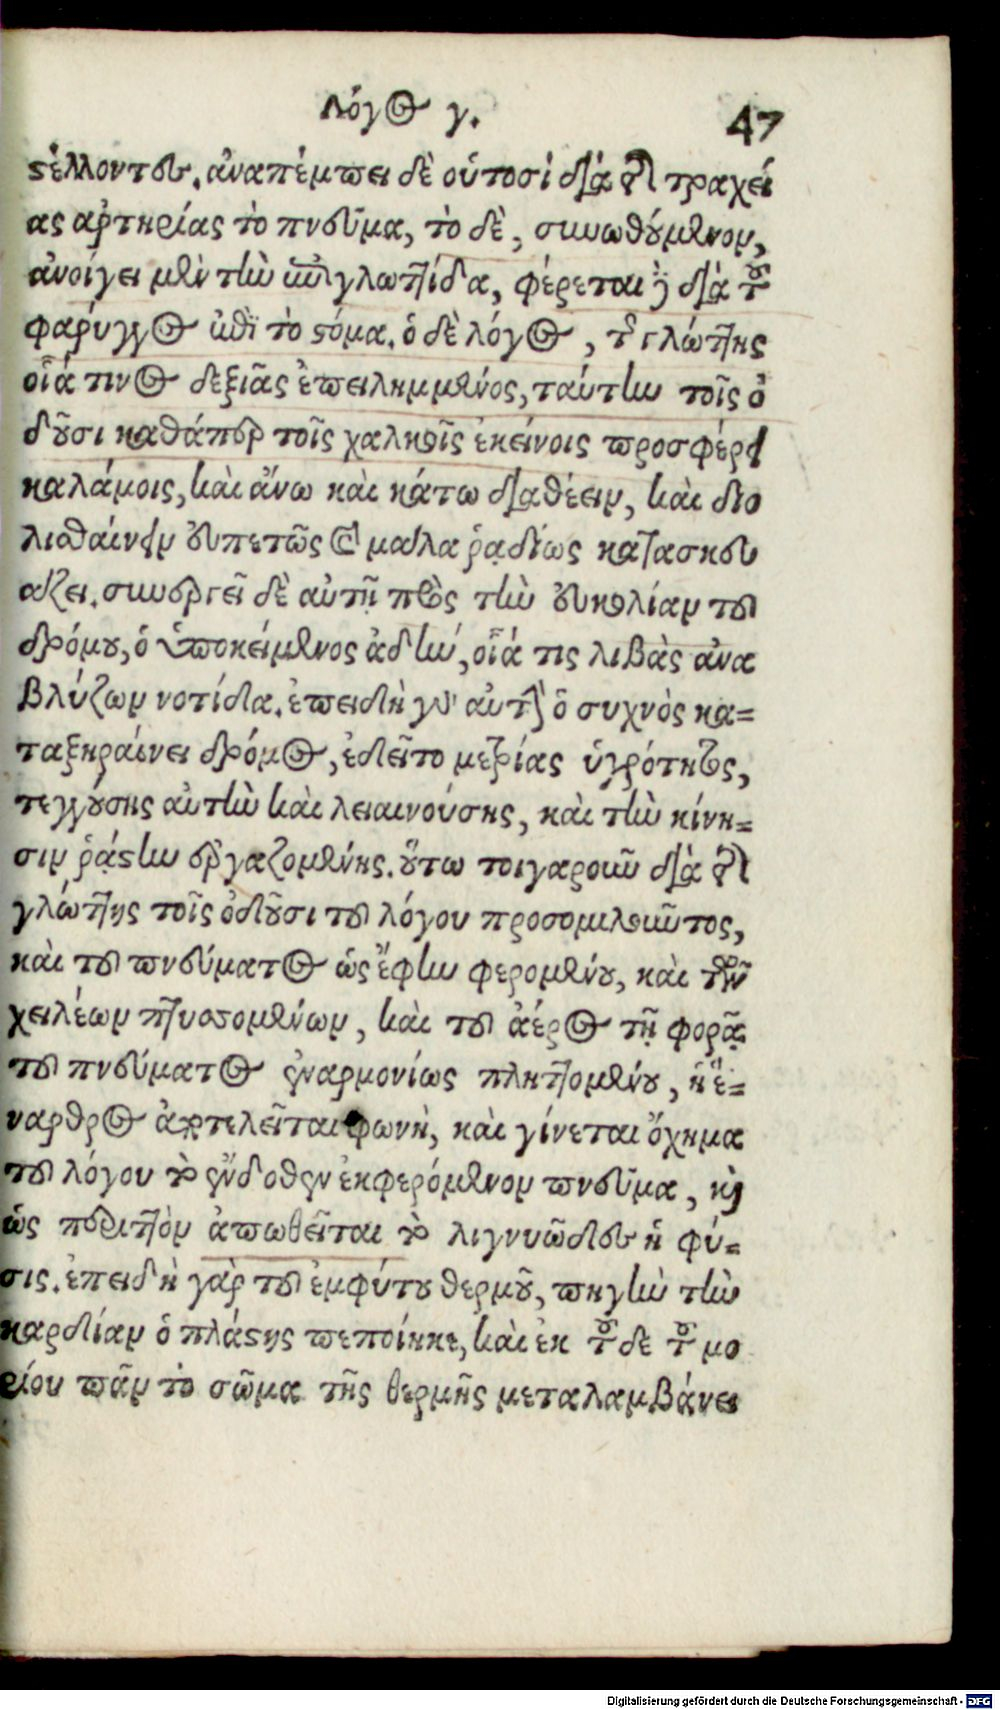 Λόγος γ. 47
στέλλοντες. ἀναπέμπει δὲ οὑτοσὶ διὰ τῆς τραχεί
ας ἀρτηρίας τὸ πνεῦμα, τὸ δὲ, συνωθούμενον,
ἀνοίγει μὲν τὴν ἐπιγλωττίδα, φέρεται δὲ διὰ τοῦ
φαρύγγος ἐπὶ τὸ στόμα. ὁ δὲ λόγος, τῆς γλώττης
οἷά τινος δεξιᾶς ἐπειλημμένος, ταύτην τοῖς ὀ
δοῦσι καθάπερ τοῖς χαλκοῖς ἐκείνοις προσφέρει
καλάμοις, καὶ ἄνω καὶ κάτω διαθέειν, καὶ διο
λισθαίνειν εὐπετῶς καὶ μάλα ῥᾳδίως κατασκευ
άζει. συνεργεῖ δὲ αὐτῇ πρὸς τὴν εὐκολίαν τοῦ
δρόμου, ὁ ὑποκείμενος ἀδὴν, οἷά τις λιβὰς ἀνα
βλύζων νοτίδα. ἐπειδὴ γὰρ αὐτὴν ὁ συχνὸς κα=
ταξηραίνει δρόμος, ἐδεῖτο μετρίας ὑγρότητος,
τεγγούσης αὐτὴν καὶ λειαινούσης, καὶ τὴν κίνη=
σιν ῥᾴστην ἐργαζομένης. οὕτω τοιγαροῦν διὰ τῆς
γλώττης τοῖς ὀδοῦσι τοῦ λόγου προσομιλοῦντος,
καὶ τοῦ πνεύματος ὡς ἔφην φερομένου, καὶ τῶν
χειλέων πτυσσομένων, καὶ τοῦ ἀέρος τῇ φορᾷ
τοῦ πνεύματος ἐναρμονίως πληττομένου, ἡ ἔ=
ναρθρος ἀποτελεῖται φωνὴ, καὶ γίνεται ὄχημα
τοῦ λόγου τὸ ἔνδοθεν ἐκφερόμενον πνεῦμα, καὶ
ὡς περιττὸν ἀπωθεῖται τὸ λιγνυῶδες ἡ φύ=
σις. ἐπειδὴ γὰρ τοῦ ἐμφύτου θερμοῦ, πηγὴν τὴν
καρδίαν ὁ πλάστης πεποίηκε, καὶ ἐκ τοῦδε τοῦ μο
ρίου πᾶν τὸ σῶμα τῆς θερμῆς μεταλαμβάνει
Digitalisierung gefördert durch die Deutsche Forschungsgemeinschaft - DFG